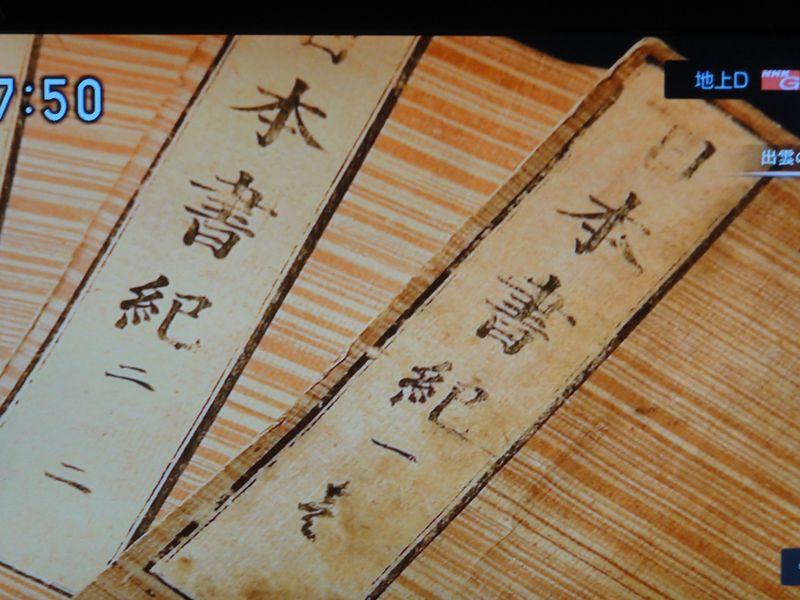 7:50
地上D
NHK G
出雲の
日本書紀 一 
本書紀 二 二